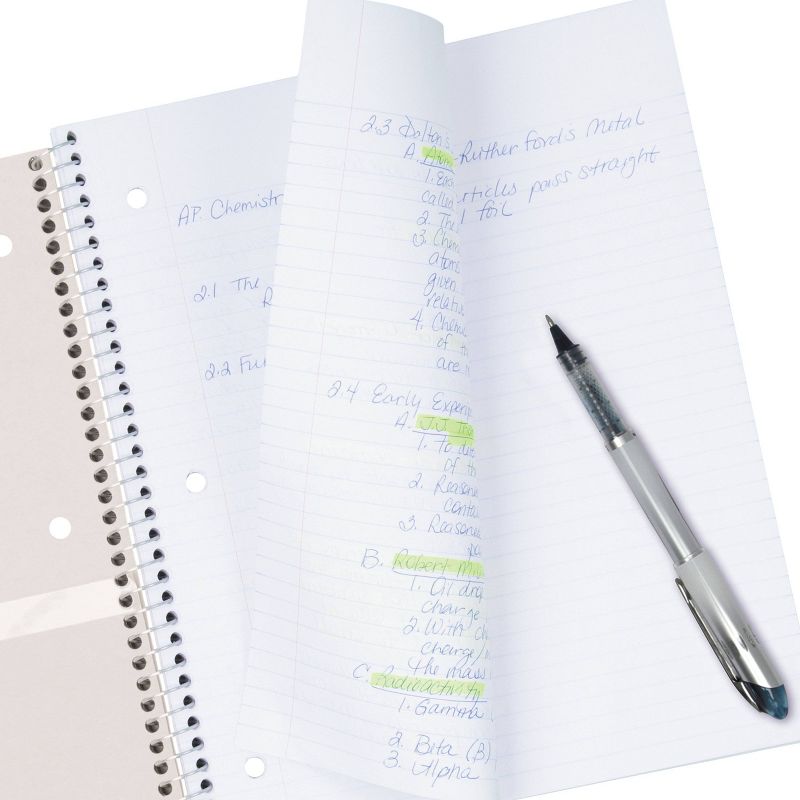 AP. Chemistr
2.1 The
R
2.2 Fu
2.3 Dalton's
A. Atom
1. Eac
called
2. The
3. Chem
atoms
given
relativ
4. Chemi
of th
are n
2.4 Early Experi
A. J.J Tho
1. To dete
of th
2. Reasone
conta
3. Reasone
po
B. Robert Mil
1. Oil drop
charge
2. With ch
charge/m
the mass
C. Radioactivity
1. Gamma
2. Bita (β)
3. Alpha
Ruther ford's Metal
articles pass straight
l foil